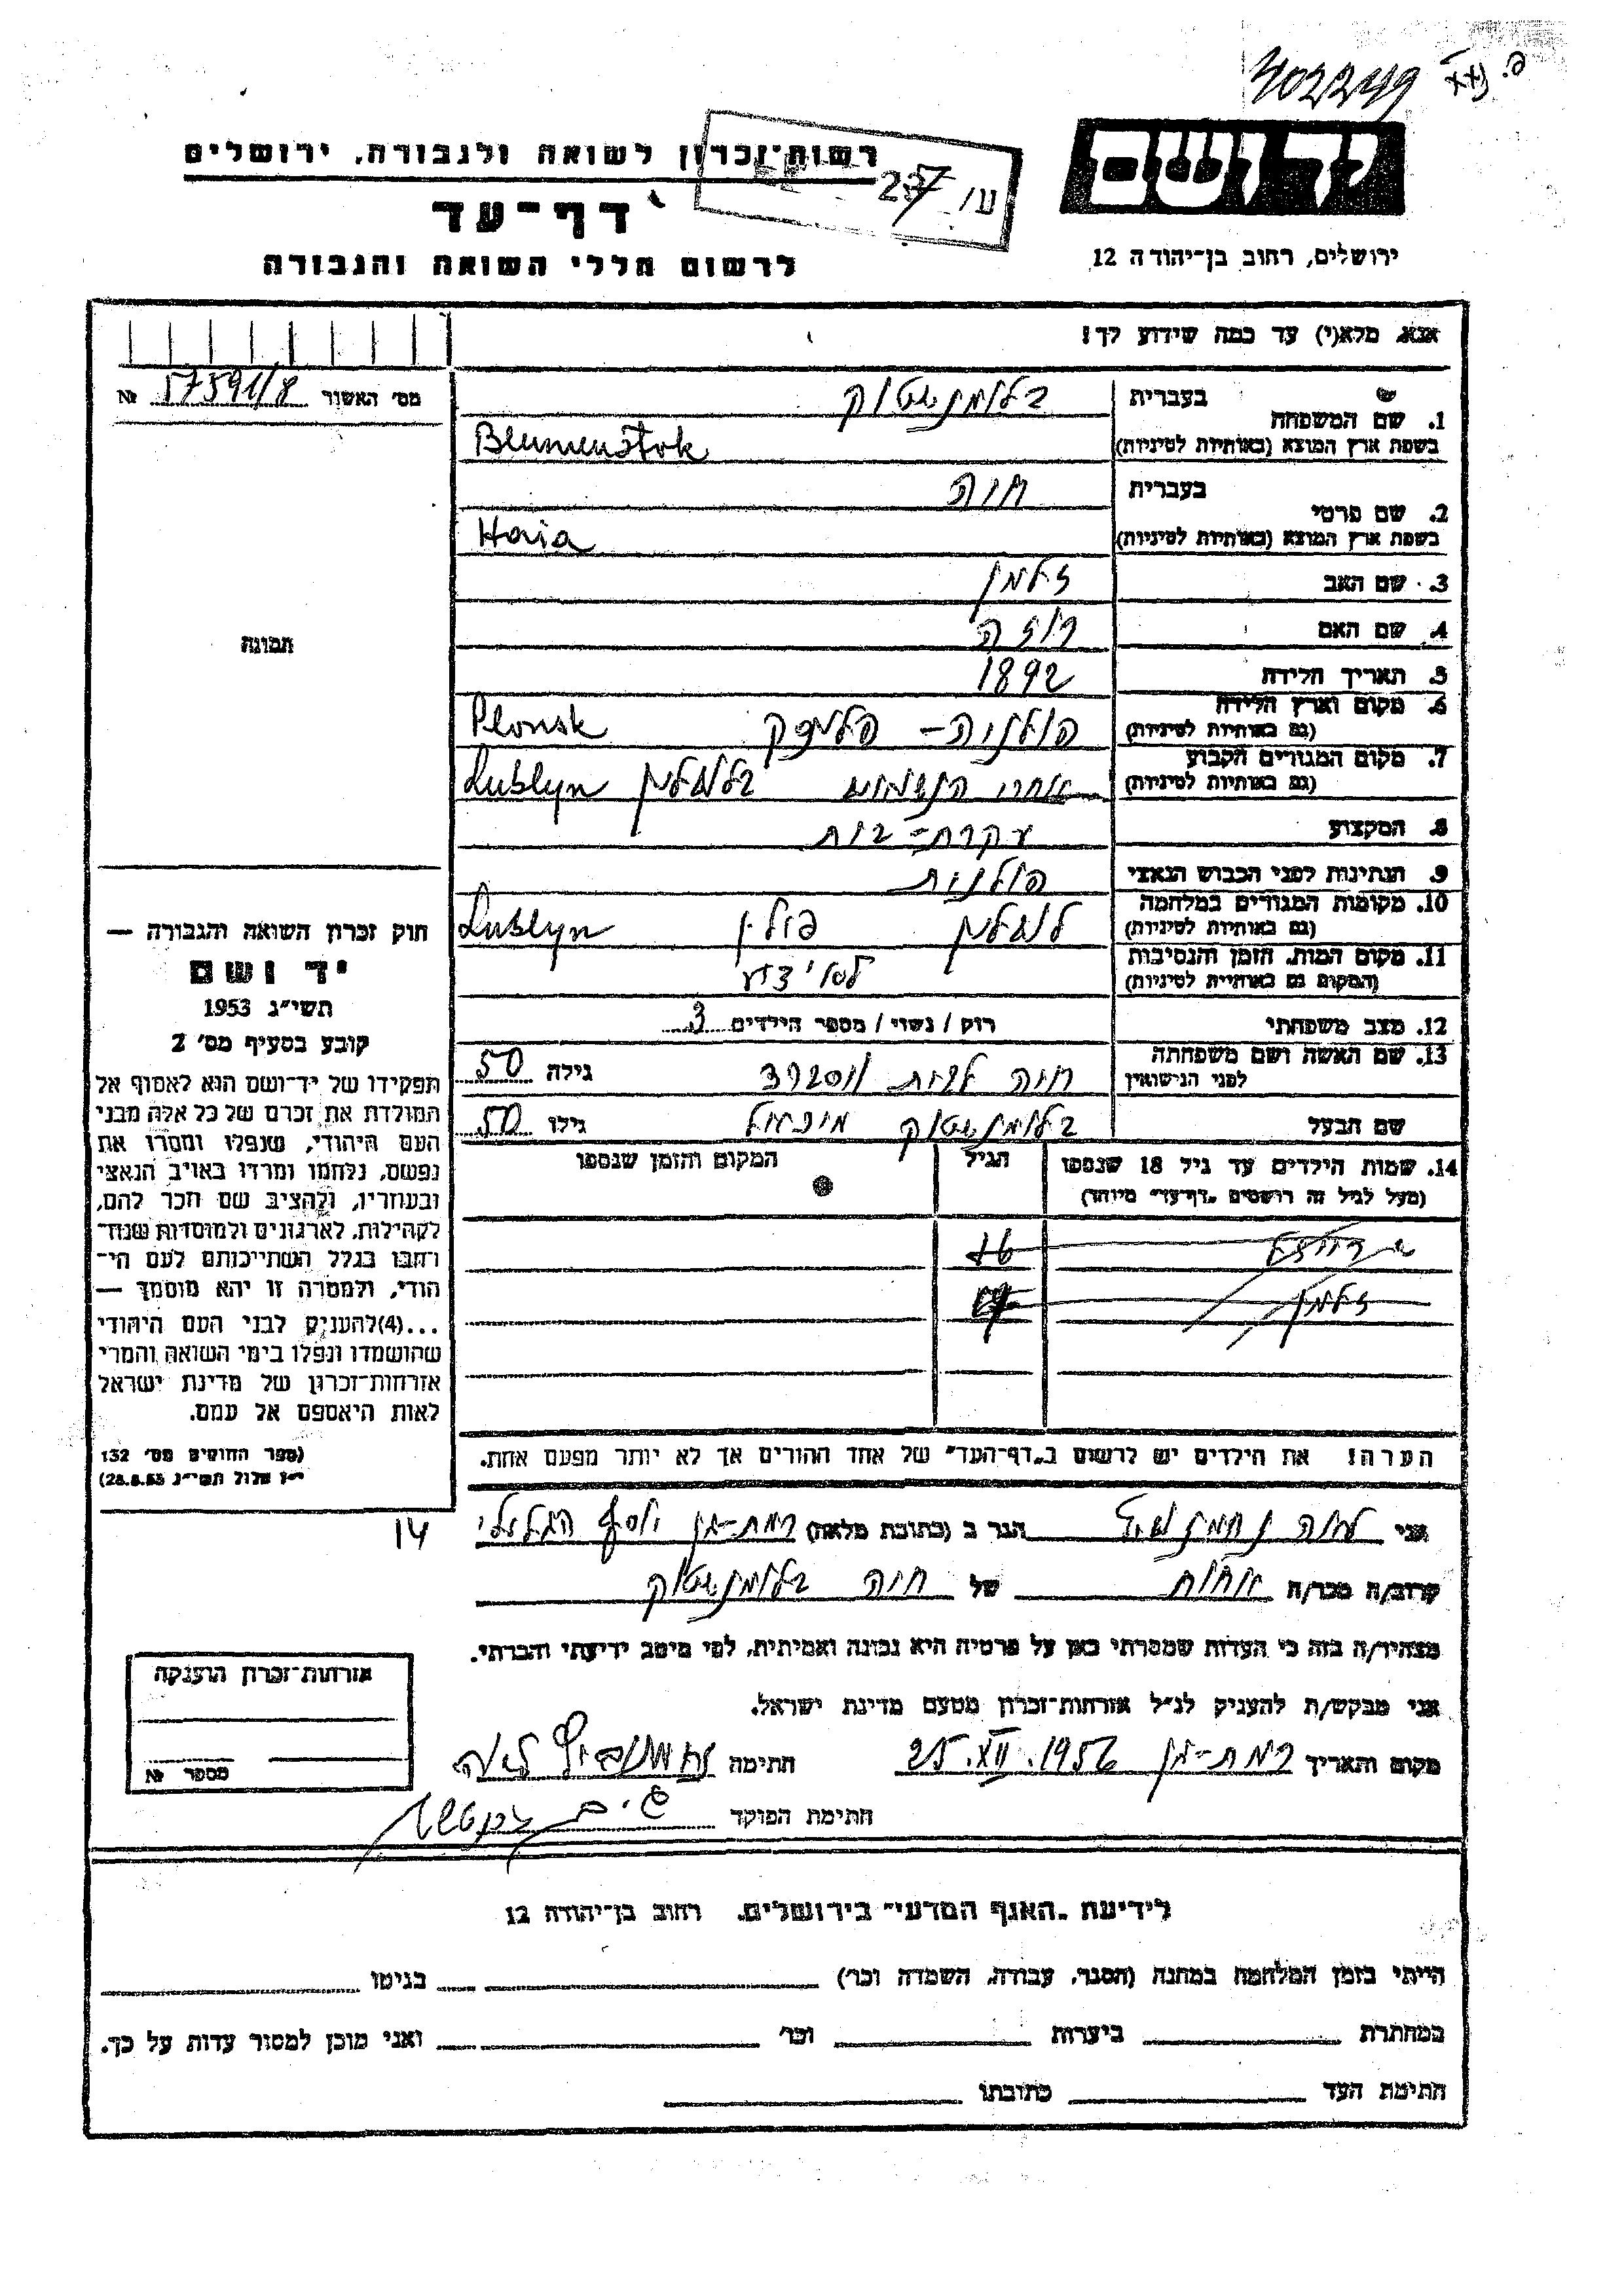 402249
רשות-זכרון לשואה ולגבורה, ירושלים
ידושם
237 /ע
דף-עד
ירושלים, רחוב בן-יהודה 12
לרשום חללי השואה והגבורה
אנא, מלא(י) עד כמה שידוע לך!
מס' האשור 57591/8 №
1. שם המשפחה
בעברית
בלומנשטוק
בשפת ארץ המוצא (באותיות לטיניות)
Blumenstok
2. שם פרטי
בעברית
חיה
בשפת ארץ המוצא (באותיות לטיניות)
Haia
3. שם האב
זלמן
4. שם האם
רוזה
תמונה
5. תאריך הלידה
1892
6. מקום וארץ הלידה
(גם באותיות לטיניות)
פולניה - פלונסק Plonsk
7. מקום המגורים הקבוע
(גם באותיות לטיניות)
אחרי הנשואים בלובלין Lublyn
8. המקצוע
עקרת-בית
9. הנתינות לפני הכבוש הנאצי
פולנית
10. מקומות המגורים במלחמה
(גם באותיות לטיניות)
לובלין פולין Lublyn
11. מקום המות, הזמן והנסיבות
(המקום גם באותיות לטיניות)
לא ידוע
12. מצב משפחתי
רוק / נשוי / מספר הילדים 3
13. שם האשה ושם משפחתה
לפני הנישואין
חיה לבית גילה 50
שם הבעל
בלומנשטוק מיכאל גילו 50
14. שמות הילדים עד גיל 18 שנספו
(מעל לגיל זה רושמים "דף-עד" מיוחד)
הגיל
המקום והזמן שנספו
16
זלמן
הערה! את הילדים יש לרשום ב"דף-העד" של אחד ההורים אך לא יותר מפעם אחת.
חוק זכרון השואה והגבורה —
יד ושם
תשי"ג 1953
קובע בסעיף מס' 2
תפקידו של יד-ושם הוא לאסוף אל
המולדת את זכרם של כל אלה מבני
העם היהודי, שנפלו ומסרו את
נפשם, נלחמו ומרדו באויב הנאצי
ובעוזריו, ולהציב שם וזכר להם,
לקהילות, לארגונים ולמוסדות שנח־
רחבו בגלל השתייכותם לעם הי־
הודי, ולמטרה זו יהא מוסמך —
...(4)להעניק לבני העם היהודי
שהושמדו ונפלו בימי השואה והמרי
אזרחות-זכרון של מדינת ישראל
לאות היאספם אל עמם.
(ספר החוקים מס' 132
י"ז אלול תשי"ג 28.8.53)
אני הגר ב (כתובת מלאה) רמת-גן יוסף הגלילי
14
קרוב/ה מכר/ה אחות של חיה בלומנשטוק
מצהיר/ה בזה כי העדות שמסרתי כאן על פרטיה היא נכונה ואמיתית, לפי מיטב ידיעתי והכרתי.
אני מבקש/ת להעניק לנ"ל אזרחות-זכרון מטעם מדינת ישראל.
מקום ותאריך רמת-גן 25.XII.1956 חתימה
חתימת הפוקד
אזרחות-זכרון הוענקה
מספר №
לידיעת "האגף המדעי" בירושלים, רחוב בן-יהודה 12
הייתי בזמן המלחמה במחנה (הסגר, עבודה, השמדה וכו') בגיטו
במחתרת ביערות וכו' ואני מוכן למסור עדות על כך.
חתימת העד כתובתו